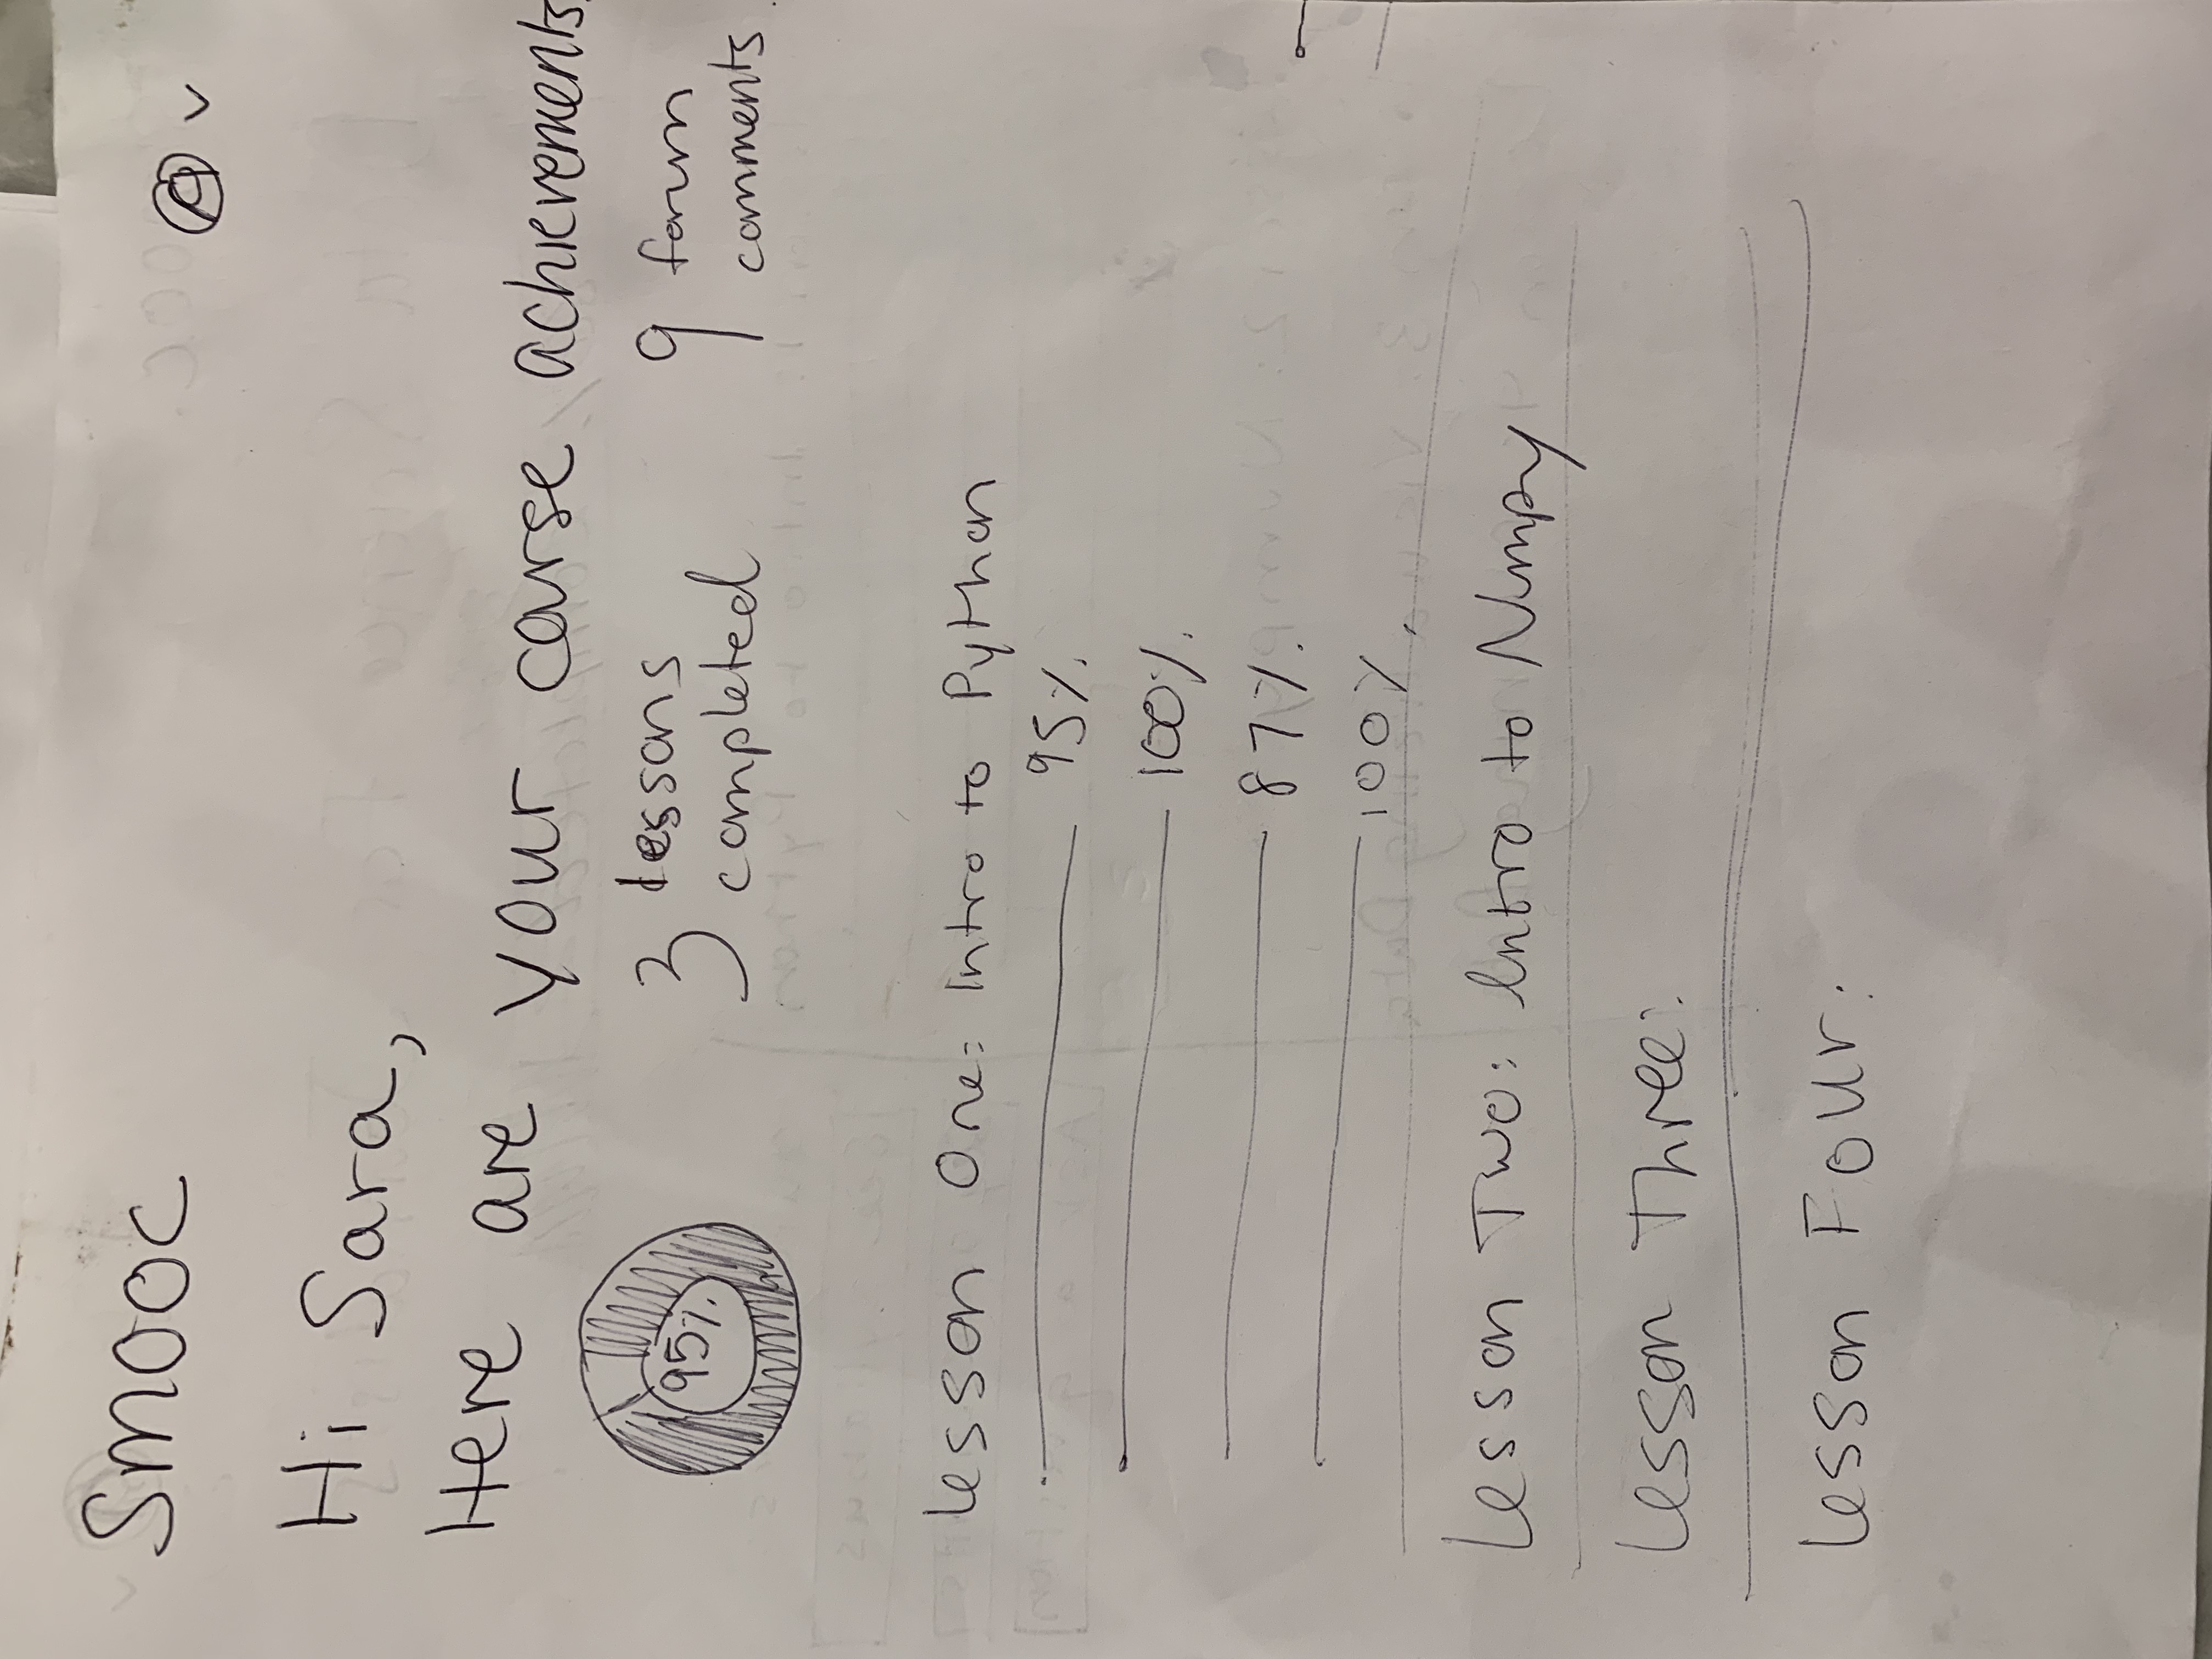 Smooc
Hi Sara,
Here are your course achievements.
95%
3 lessons completed
9 forum comments
Lesson One: Intro to Python
95%
100%
87%
100%
Lesson Two: Intro to Numpy
Lesson Three:
Lesson Four: